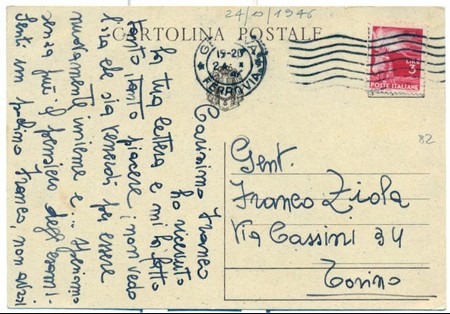 24/10/1946
CARTOLINA POSTALE
19-20
FERROVIA
LIRE 3
POSTE ITALIANE
82
Gent.
Franco Ziola
Via Cassini 34
Torino
Carissimo Franco
ho ricevuto
la tua lettera e mi ha fatto
tanto tanto piacere; non vedo
l'ora che sia venerdì per essere
nuovamente insieme e... staremo
senza più il pensiero degli esami -
Senti un pochino Franco, non